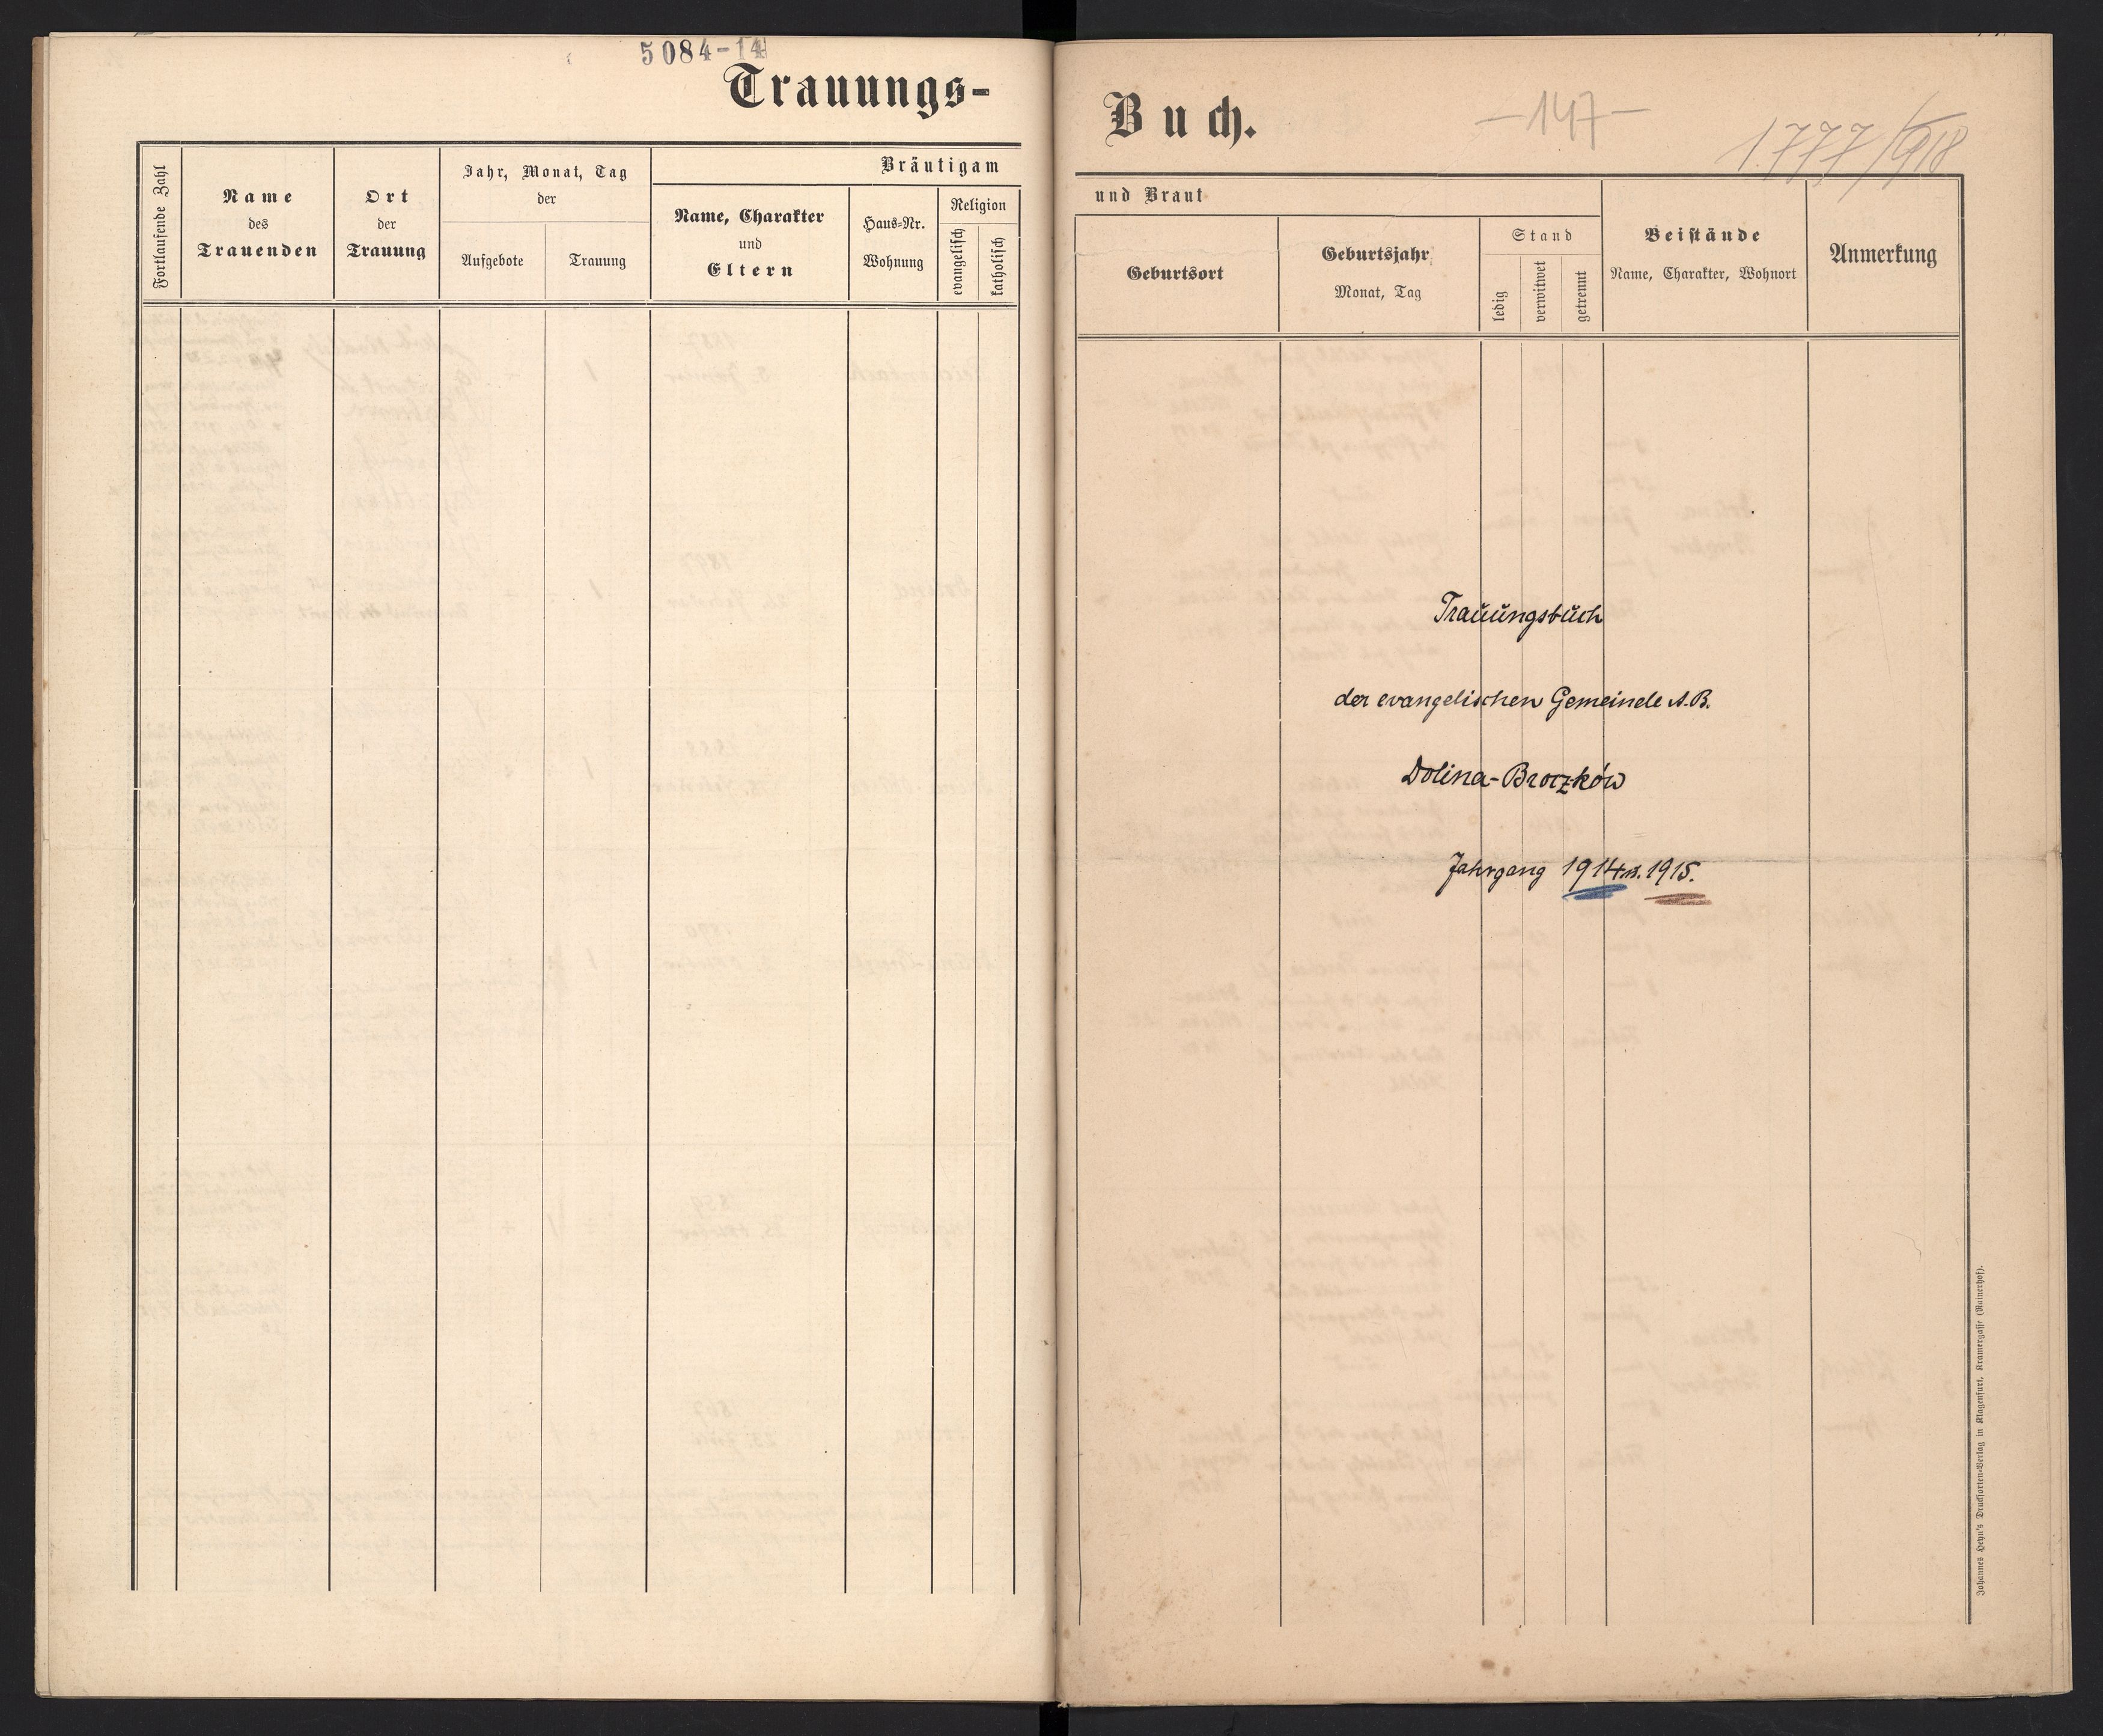 5084-14
Trauungs-
Fortlaufende Zahl
Name
des
Trauenden
Ort
der
Trauung
Jahr, Monat, Tag
der
Aufgebote
Trauung
Bräutigam
Name, Charakter
und
Eltern
Haus-Nr.
Wohnung
Religion
evangelisch
katholisch
Buch.
-147-
1777/918
und Braut
Geburtsort
Geburtsjahr
Monat, Tag
Stand
ledig
verwitwet
getrennt
Beistände
Name, Charakter, Wohnort
Anmerkung
Trauungsbuch
der evangelischen Gemeinde A.B.
Dolina-Broczków
Jahrgang 1914 u. 1915.
Johannes Heyn's Drucksorten-Verlag in Klagenfurt, Kramergasse (Rainerhof).